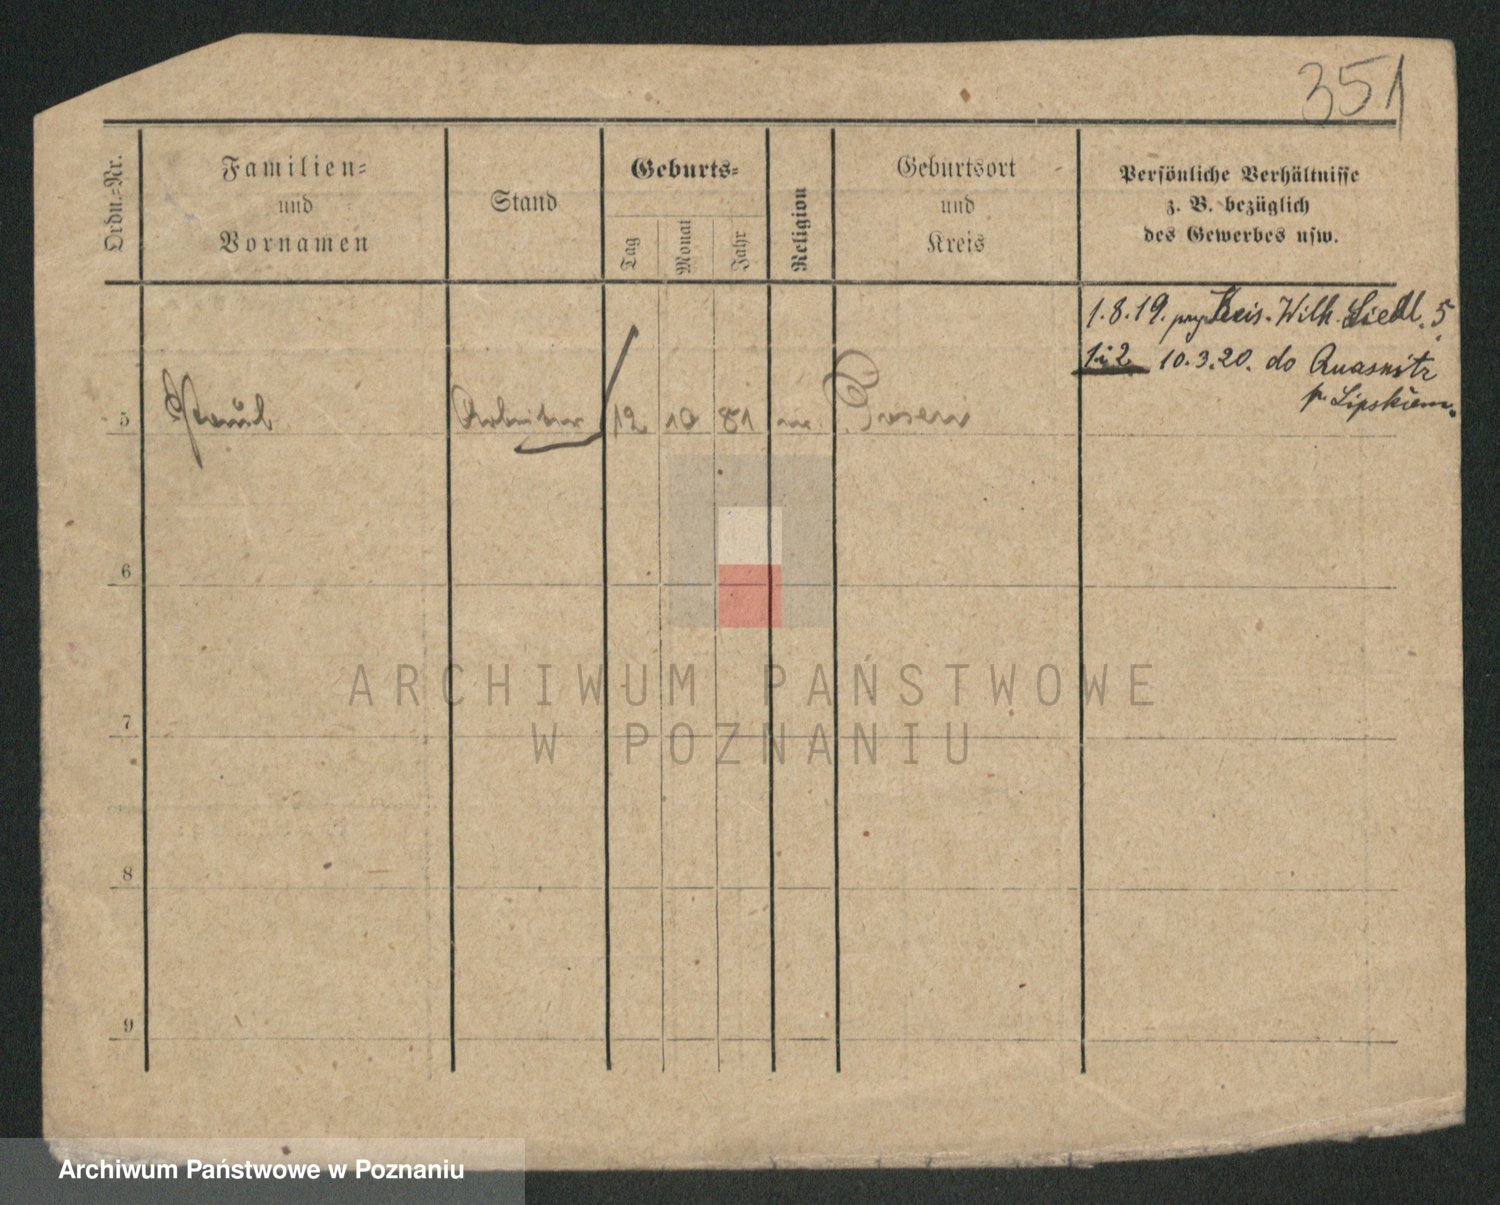 351
Ordn.-Nr.
Familien-
und
Vornamen
Stand
Geburts-
Tag
Monat
Jahr
Religion
Geburtsort
und
Kreis
Persönliche Verhältnisse
z. B. bezüglich
des Gewerbes usw.
1.8.19. Wilh. Siedl. 5
1 i 2 10.3.20. do Quasnitz
p. Lipskiem.
5 Arbeiter 12 10 81 Posen
6
7
8
9
ARCHIWUM PAŃSTWOWE
W POZNANIU
Archiwum Państwowe w Poznaniu